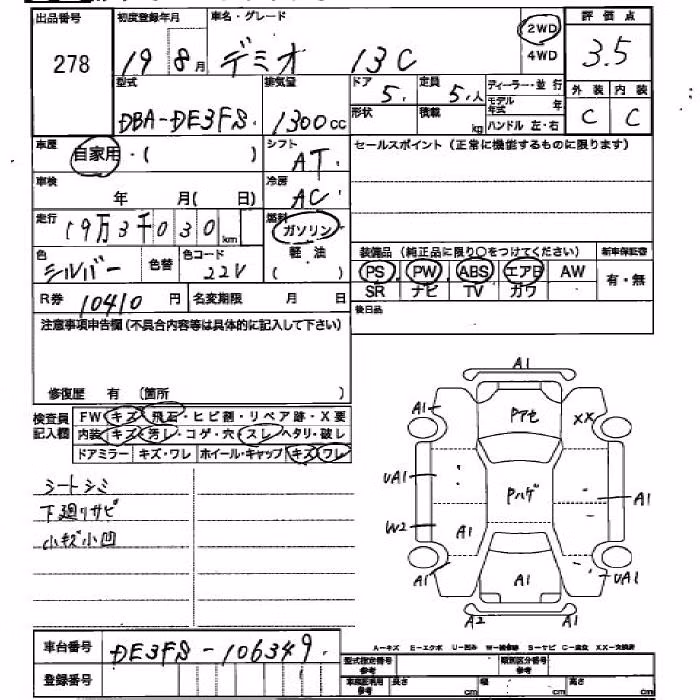 出品番号 初度登録年月 車名・グレード 2WD 4WD 評価点
278 19 8月 デミオ 13C 3.5
型式 排気量 ドア 定員 ディーラー・並行 外装 内装
DBA-DE3FS 1300cc 5 5人 モデル年式 年 C C
形状 積載 kg ハンドル 左・右
車歴 自家用・( ) シフト AT セールスポイント(正常に機能するものに限ります)
車検 年 月( 日) 冷房 AC
走行 19万3千030km 燃料 ガソリン
軽油
( )
色 シルバー 色替 色コード 22V
装備品(純正品に限り○をつけてください) 新車保証書
PS PW ABS エアB AW 有・無
SR ナビ TV ガワ
R券 10410円 名変期限 月 日
後日品
注意事項申告欄(不具合内容等は具体的に記入して下さい)
修復歴 有 (箇所 )
検査員記入欄 FW キズ・飛石・ヒビ割・リペア跡・X要
内装 キズ・汚レ・コゲ・穴・スレ・ヘタリ・破レ
ドアミラー キズ・ワレ ホイール・キャップ キズ・ワレ
シートシミ
下廻りサビ
小キズ小凹
A1
A1 Pアセ XX
UA1 Pハゲ A1
W2 A1
A1 A1 UA1
A2 A1
A-キズ E-エクボ U-凹み W-補修跡 S-サビ C-腐食 XX-交換済
車台番号 DE3FS-106349
登録番号
型式指定番号 参考 類別区分番号 参考
車検証利用 参考 長さ cm 幅 cm 高さ cm